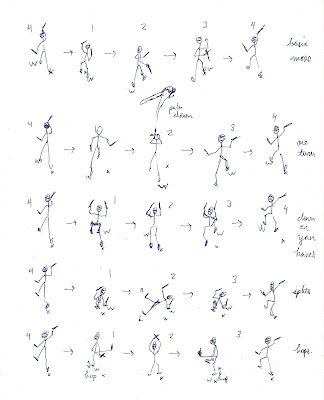 4 1 2 3 4
basic
move
w w w w
x x x x x
palm
down
4 1 2 3 4
one
turn
w w w w
x x x x
4 1 2 3 4
down
on
your
knees
w w w w
x x x x
4 1 2 3
splits
x x x
4 1 2 3
hops.
hop x